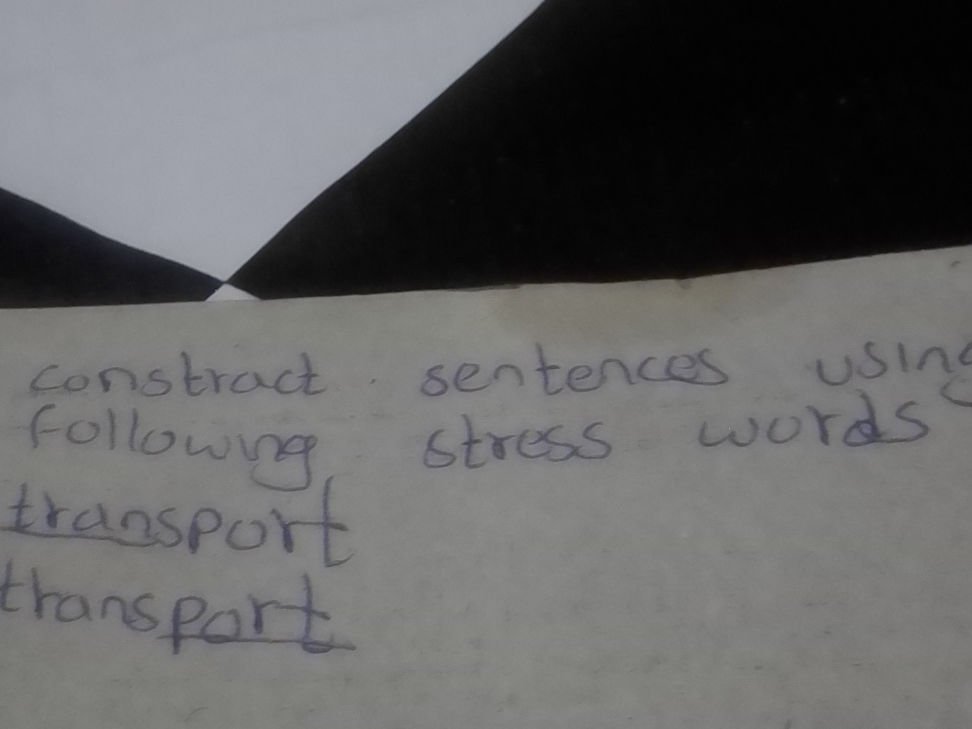 constract sentences using
following stress words
transport
transport